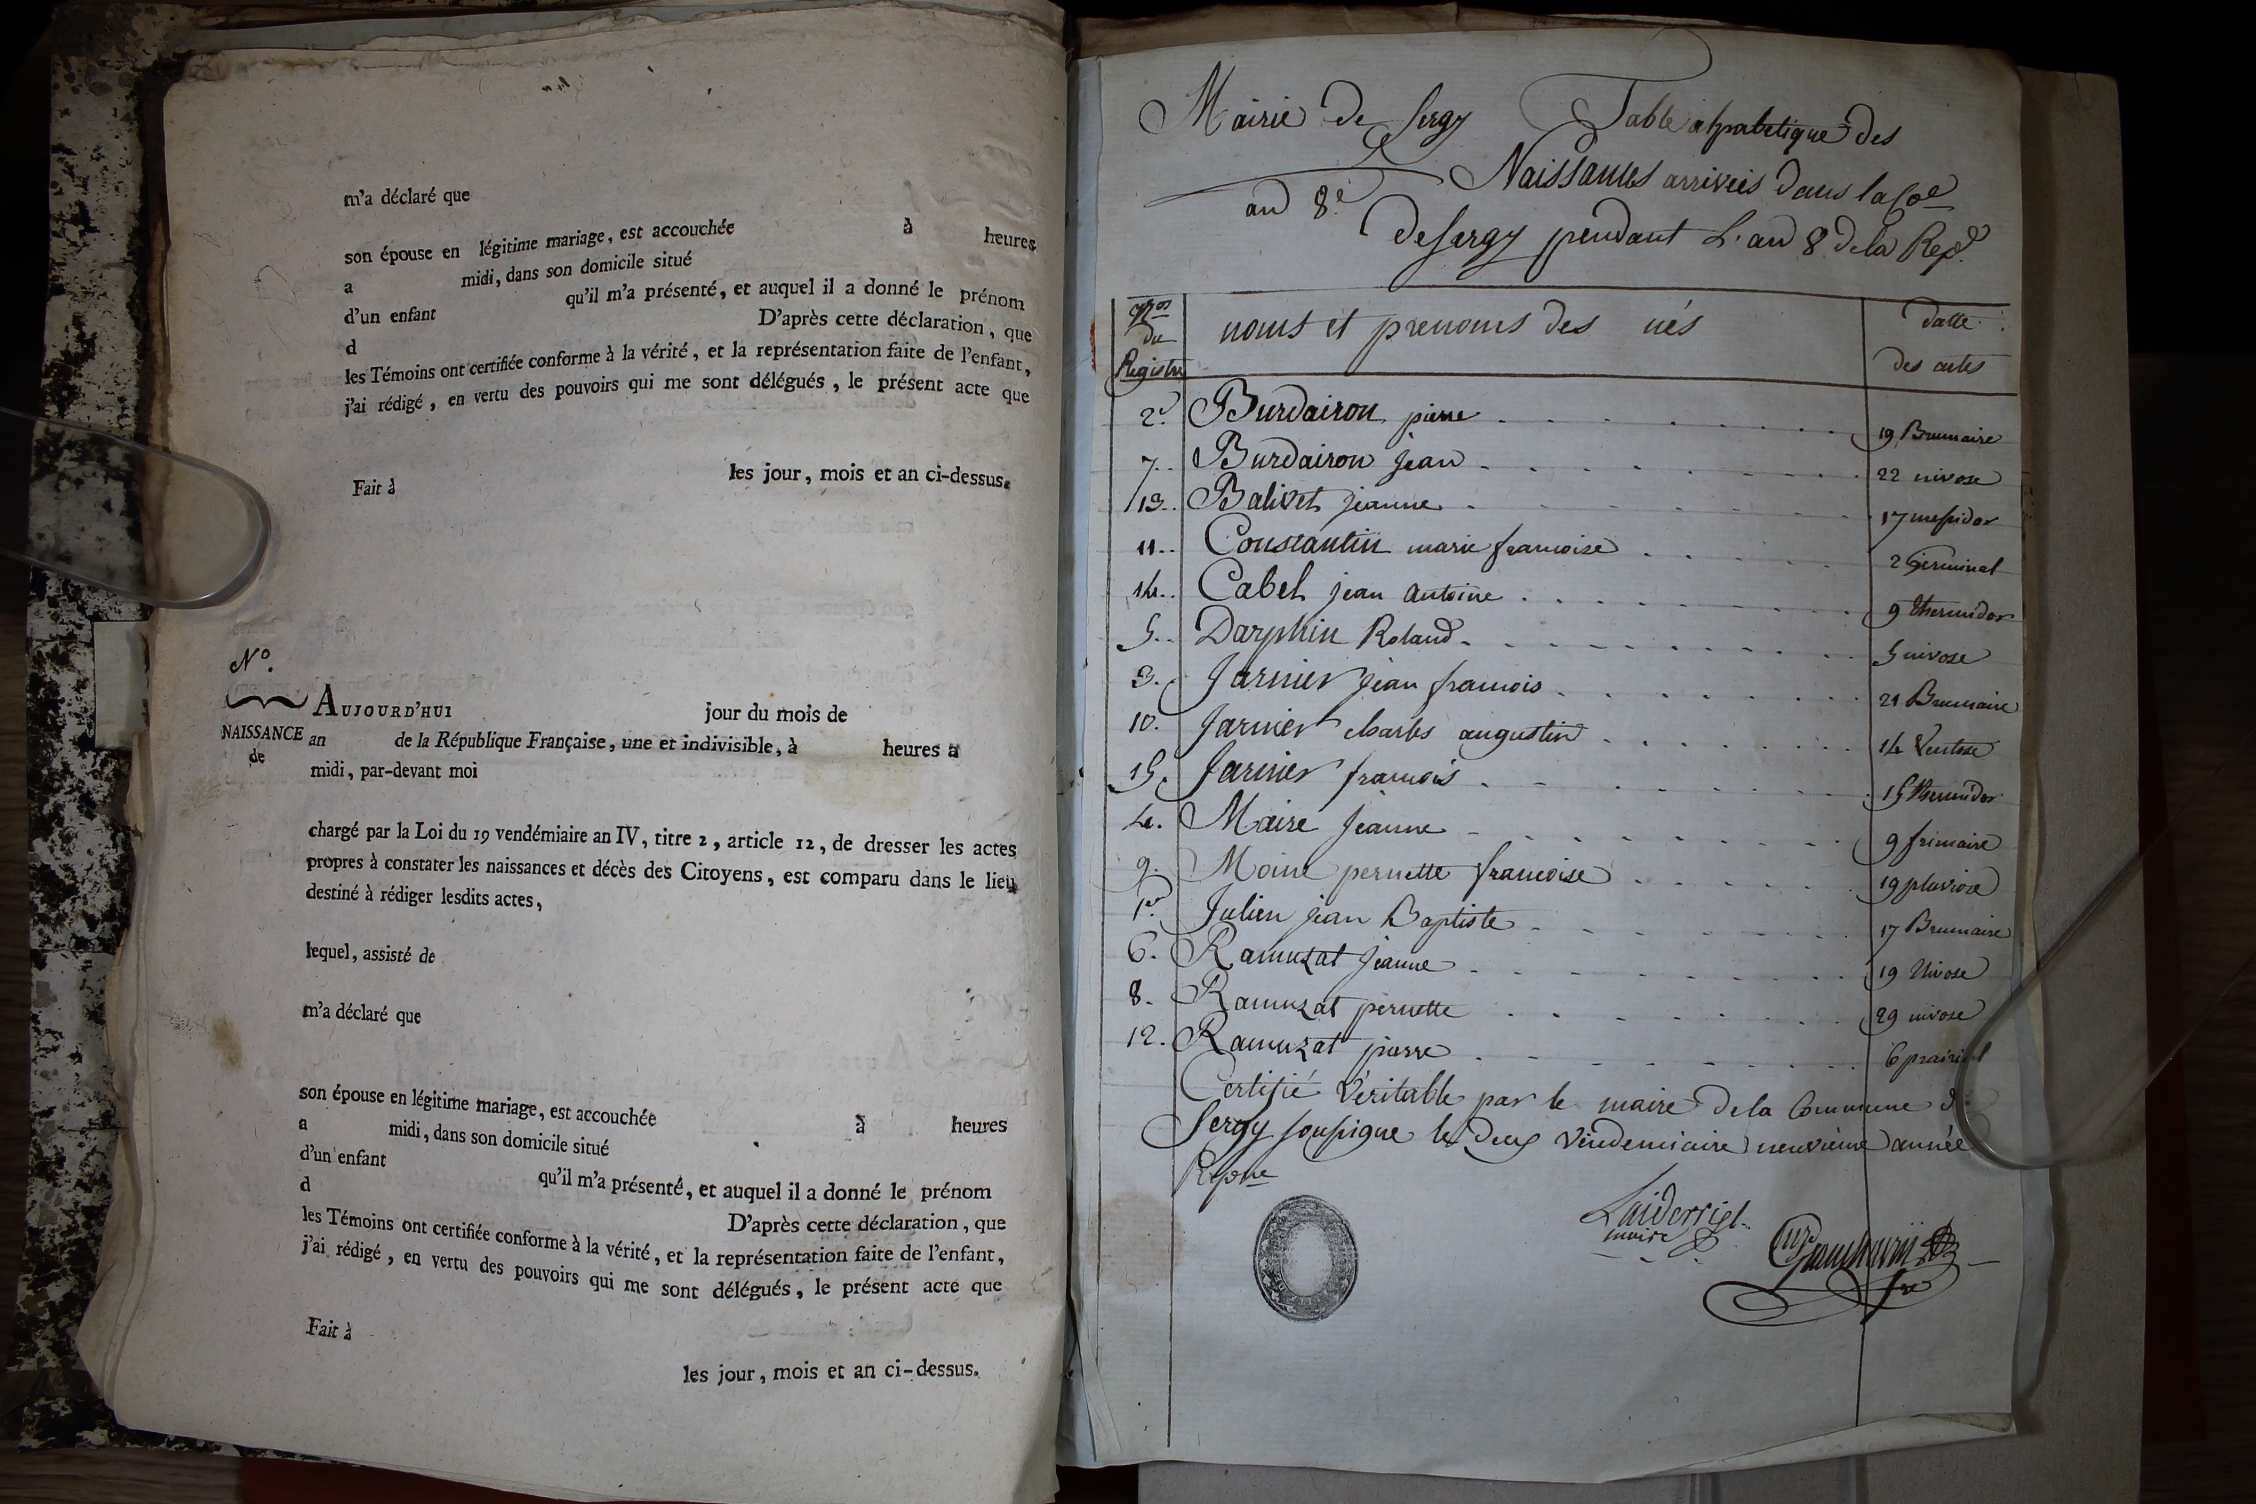 m'a déclaré que
son épouse en légitime mariage, est accouchée à heures
a midi, dans son domicile situé
d'un enfant qu'il m'a présenté, et auquel il a donné le prénom
d D'après cette déclaration, que
les Témoins ont certifiée conforme à la vérité, et la représentation faite de l'enfant,
j'ai rédigé, en vertu des pouvoirs qui me sont délégués, le présent acte que
Fait à les jour, mois et an ci-dessus.
N°.
AUJOURD'HUI jour du mois de
NAISSANCE an de la République Française, une et indivisible, à heures a
de
midi, par-devant moi
chargé par la Loi du 19 vendémiaire an IV, titre 2, article 12, de dresser les actes
propres à constater les naissances et décès des Citoyens, est comparu dans le lieu
destiné à rédiger lesdits actes,
lequel, assisté de
m'a déclaré que
son épouse en légitime mariage, est accouchée à heures
a midi, dans son domicile situé
d'un enfant qu'il m'a présenté, et auquel il a donné le prénom
d D'après cette déclaration, que
les Témoins ont certifiée conforme à la vérité, et la représentation faite de l'enfant,
j'ai rédigé, en vertu des pouvoirs qui me sont délégués, le présent acte que
Fait à
les jour, mois et an ci-dessus.
Mairie de Sergy Table alphabetique des
Naissances arrivées dans la Coe
an 8e
de Sergy pendant L'an 8 de la Rep.
Nros du Registre noms et prenoms des nés datte des actes
2e Burdairon pierre 19 Brumaire
7 Burdairon jean 22 nivose
13 Balivet jeanne 17 messidor
11 Constantin marie francoise 2 Germinal
14 Cabel jean antoine 9 thermidor
5 Darphin Roland 5 nivose
3 Jarnier jean francois 21 Brumaire
10 Jarnier charles augustin 14 Ventose
15 Jarnier francois 15 thermidor
4 Maire jeanne 9 frimaire
9 Moine pernette francoise 19 pluviose
1er Julien jean Baptiste 17 Brumaire
6 Ramuzat jeanne 19 Nivose
8 Ramuzat pernette 29 nivose
12 Ramuzat pierre 6 prairial
Certifié Veritable par le maire de la Commune de
Sergy soussigné le deux Vendemiaire neuvieme année
Repne
maire